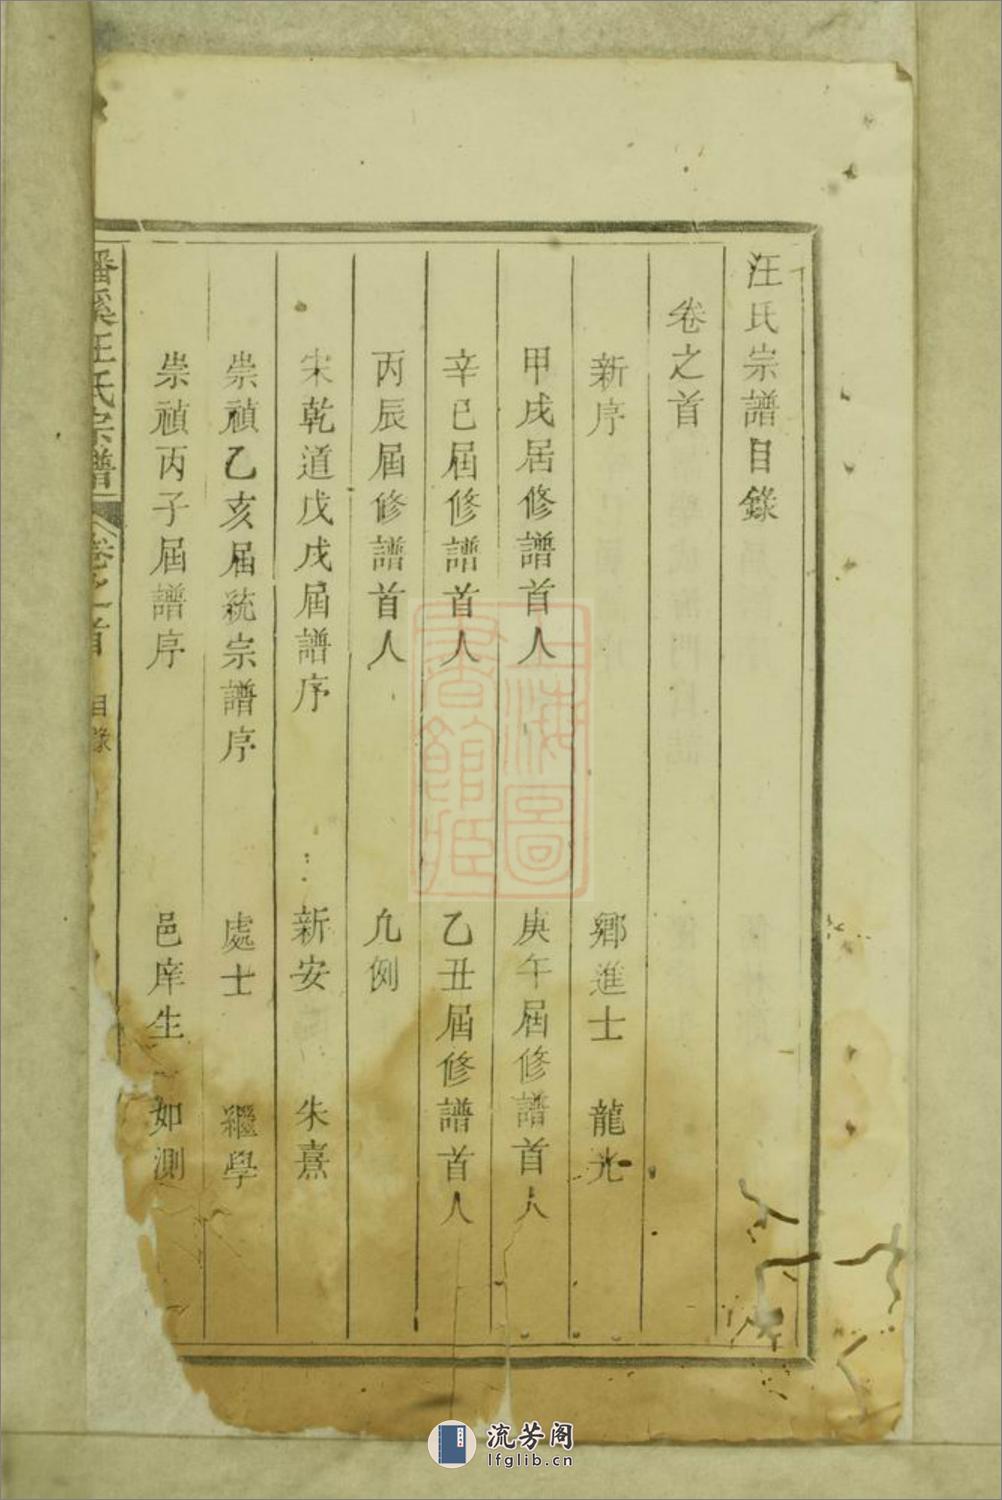 汪氏宗譜目錄
卷之首
新序 鄉進士 龍光
甲戌居修譜首人 庚午屆修譜首人
辛巳屆修譜首人 乙丑屆修譜首人
丙辰屆修譜首人 凡例
宋乾道戊戌屆譜序 新安 朱熹
崇禎乙亥届統宗譜序 處士 繼學
崇禎丙子屆譜序 邑庠生 如測
潘溪汪氏宗譜 卷之首 目錄
上海圖書館藏
流芳阁
lfglib.cn